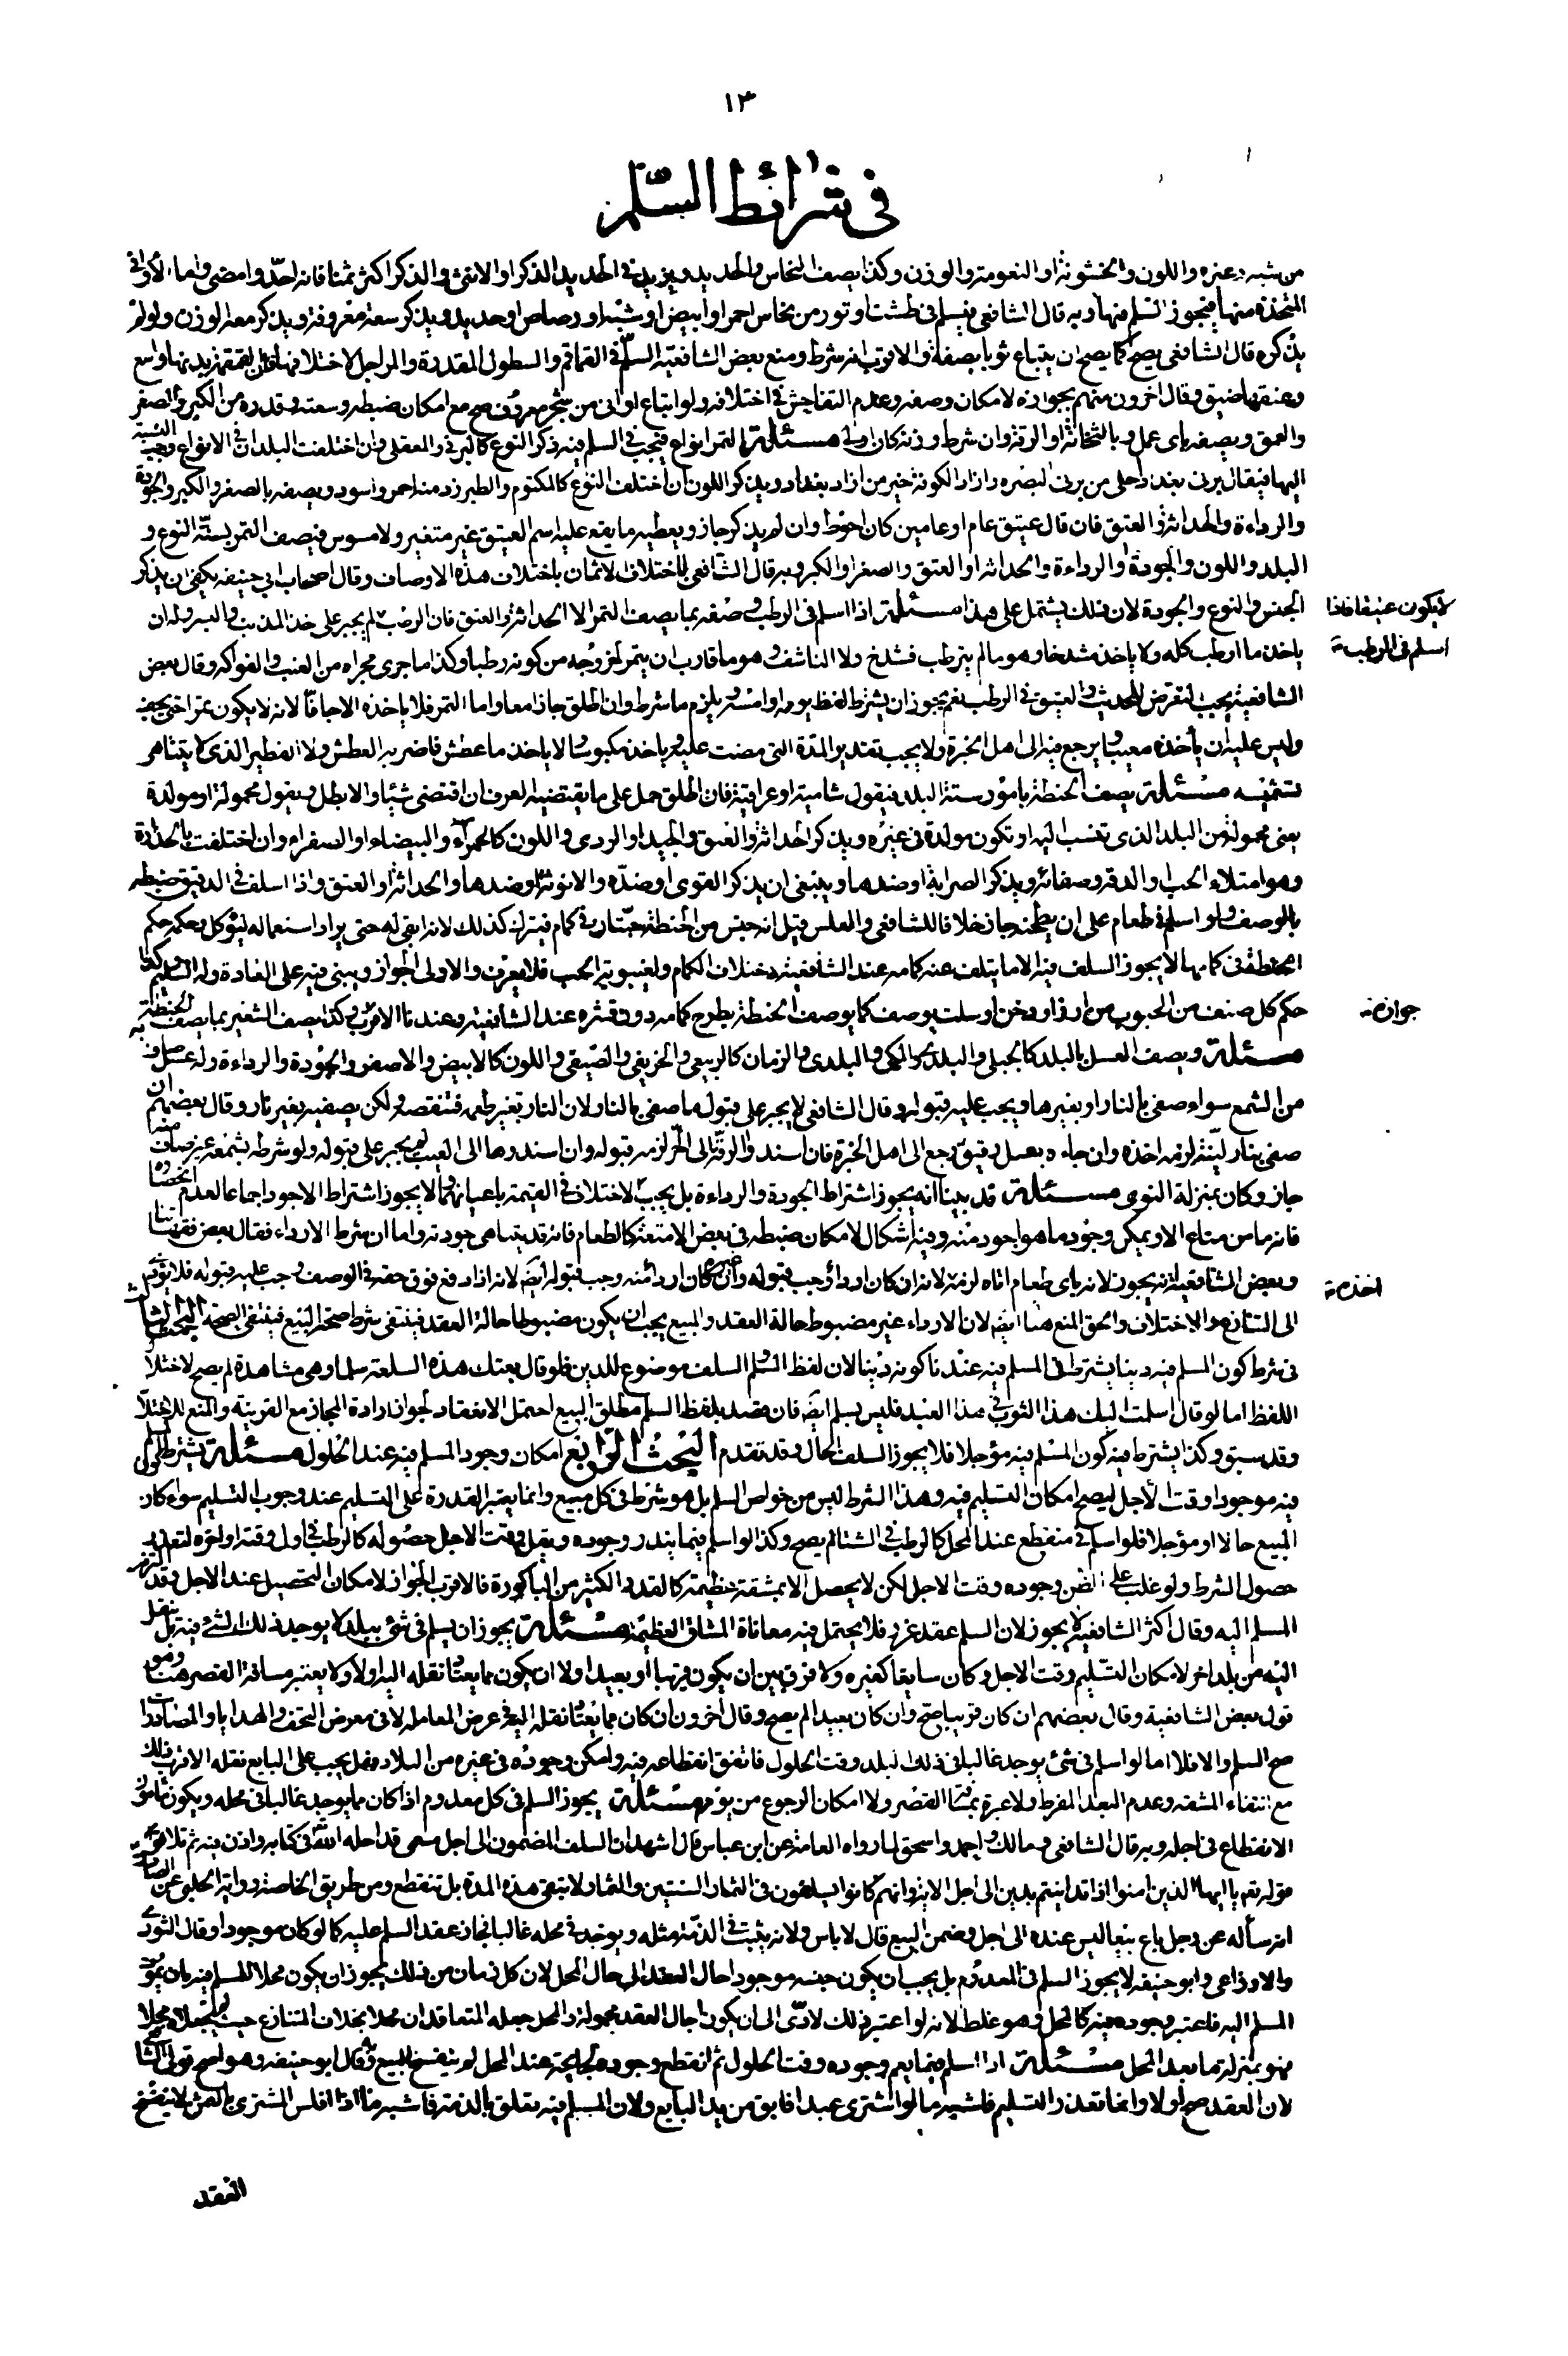 ١٣
في شرائط السلم
من شبه وغيره واللون والخشونة او النعومة والوزن وكذا يصف النحاس والحديد ويزيد في الحديد الذكر او الانثى والذكر اكثر ثمنا فانه احدّ وامضى واما الاواني
المتخذة منها فيجوز السلم فيها وبه قال الشافعي فيسلم في طشت او تور من نحاس احمر او ابيض او شبه او رصاص او حديد ويذكر سعة معروفة ويذكر معه الوزن ولو لم
يذكره قال الشافعي يصح كما يصح ان يبتاع ثوبا بصفة والاقرب انه شرط ومنع بعض الشافعية السلم في القماقم والسطول المقدرة والمراجل لاختلافها فان القمقمة بدنها واسع
وعنقها ضيق وقال آخرون منهم بجوازه لامكان وصفه وعدم التفاحش في اختلافه ولو ابتاع اواني من شجر معروف صح مع امكان ضبطه وسعته وقدره من الكبر والصغر
والعمق ويصفه باي عمل وبالثخانة او الرقة وان شرط وزنه كان اولى مسئلة التمر انواع فيجب في السلم فيه ذكر النوع كالبرني والمعقلي وان اختلفت البلدان في الانواع وجب النسبة
اليها فيقال برني بغداد احلى من برني البصرة وازاد الكوفة خير من ازاد بغداد ويذكر اللون ان اختلف النوع كالمكتوم والطبرزد منه احمر واسود ويصفه بالصغر والكبر والجودة
والرداءة والحداثة والعتق فان قال عتيق عام او عامين كان احوط وان لم يذكر جاز ويعطيه ما يقع عليه اسم العتيق غير متغير ولا مسوس فيصف التمر بستة النوع و
البلد واللون والجودة او الرداءة والحداثة او العتق والصغر او الكبر وبه قال الشافعي لاختلاف الاثمان باختلاف هذه الاوصاف وقال اصحاب ابي حنيفة يكفي ان يذكر
الجنس والنوع والجودة لان ذلك يشتمل على هذا مسئلة اذا اسلم في الرطب وصفه بما يصف التمر الا الحداثة والعتق فان الرطب لم يجبر على اخذ المذنب والبسر وله ان
لا يكون عتيقا فاذا
اسلم في الرطب
ياخذ ما ارطب كله ولا ياخذ مشدخا وهو ما لم يترطب فشدخ ولا الناشف وهو ما قارب ان يتمر لخروجه من كونه رطبا وكذا ما جرى مجراه من العنب والفواكه وقال بعض
الشافعية يجب التعرض للحديث والعتيق في الرطب نعم يجوز ان يشترط لقط يومه او امسه ويلزم ما شرط وان اطلق جاز معا واما التمر فلا ياخذه الا جافا لانه لا يكون تمرا حتى يجف
وليس عليه ان ياخذه معيبا ويرجع فيه الى اهل الخبرة ولا يجب تقدير المدة التي مضت عليه وياخذ مكبوسا لا ياخذ ما عطش فاضر به العطش ولا الفطير الذي لا يتناهى
تشميسه مسئلة يصف الحنطة بامور ستة البلد فيقول شامية او عراقية فان اطلق حمل على ما يقتضيه العرف ان اقتضى شيئا والا بطل ويقول محمولة او مولدة
يعني محمولة من البلد الذي تنسب اليه او تكون مولدة في غيره ويذكر الحداثة والعتق والجيد او الردي واللون كالحمراء والبيضاء او الصفراء وان اختلفت بالحدارة
وهو امتلاء الحب او الدقة وصفائه ويذكر الصرابة او ضدها وينبغي ان يذكر القوي او ضده والانوثة او ضدها والحداثة او العتق واذا اسلف في الدقيق ضبطه
بالوصف ولو اسلم في طعام على ان يطحنه جاز خلافا للشافعي والعلس قيل انه جنس من الحنطة حبتان في كمام فيترك كذلك لانه ابقى له حتى يراد استعماله ليؤكل وحكمه حكم
الحنطة في كمامها لا يجوز السلف فيه الا ما يتلف عنه كمامه عند الشافعية لاختلاف الكمام ولغيبوبة الحب فلا يعرف والاولى الجواز ويبنى فيه على العادة وله التسليم وكذا
حكم كل صنف من الحبوب من ارز او دخن او سلت يوصف كما يوصف الحنطة بطرح كمامه دون قشره عند الشافعية وعندنا الاقرب وكذا يصف الشعير بما يصف الحنطة به
جوازه
مسئلة ويصف العسل بالبلد كالجبلي والبلدي والمكي والبلدي والزمان كالربيعي والخريفي والصيفي واللون كالابيض والاصفر والجودة والرداءة وله عسل صاف
من الشمع سواء صفي بالنار او بغيرها ويجب عليه قبوله وقال الشافعي لا يجبر على قبوله ما صفي بالنار لان النار تغير طعمه فتنقصه ولكن يصفيه بغير نار وقال بعضهم ان
صفي بنار لينة لزمه اخذه وان جاءه بعسل رقيق رجع الى اهل الخبرة فان اسندوا الرقة الى الحر لزمه قبوله وان اسندوها الى العيب لم يجبر على قبوله ولو شرطه بشمعه غير صاف منه
جاز وكان بمنزلة النوى مسئلة قد بينا انه يجوز اشتراط الجودة والرداءة بل يجب لاختلاف القيمة باعيانهما ولا يجوز اشتراط الاجود اجماعا لعدم انحصاره
فانه ما من متاع الا ويمكن وجود ما هو اجود منه وفيه اشكال لامكان ضبطه في بعض الامتعة كالطعام فانه قد يتناهى جودته واما ان شرط الارداء فقال بعض فقهائنا
وبعض الشافعية انه يجوز لانه باي طعام اتاه لزمه لانه ان كان اردأ وجب قبوله وان كان اردأ منه وجب قبوله ايضا لانه اذا دفع فوق حقه في الوصف وجب عليه قبوله فلا يؤدي
اخذه
الى التنازع والاختلاف والحق المنع هنا ايضا لان الارداء غير مضبوط حالة العقد والمبيع يجب ان يكون مضبوطا حالة العقد فينتفي شرط صحة البيع فينتفي الصحة البحث الثالث
في شرط كون المسلم فيه دينا يشترط في المسلم فيه عندنا كونه دينا لان لفظ السلم والسلف موضوع للدين فلو قال بعتك هذه السلعة سلما وهي مشاهدة لم يصح لاختلال
اللفظ اما لو قال اسلمت اليك هذا الثوب في هذا العبد فليس بسلم ايضا فان قصد بلفظ السلم مطلق البيع احتمل الانعقاد لجواز ارادة المجاز مع القرينة والمنع للاختلال
وقد سبق وكذا يشترط فيه كون المسلم فيه مؤجلا فلا يجوز السلف الحال وقد تقدم البحث الرابع امكان وجود المسلم فيه عند الحلول مسئلة يشترط كون المسلم
فيه موجودا وقت الاجل ليصح امكان التسليم فيه وهذا الشرط ليس من خواص السلم بل هو شرط في كل مبيع وانما يعتبر القدرة على التسليم عند وجوب التسليم سواء كان
المبيع حالا او مؤجلا فلو اسلم في منقطع عند المحل كالرطب في الشتاء لم يصح وكذا لو اسلم فيما يندر وجوده ويقل وقت الاجل حصوله كالرطب في اول وقته او آخره لتعذر
حصول الشرط ولو غلب على الظن وجوده وقت الاجل لكن لا يحصل الا بمشقة عظيمة كالقدر الكثير من الباكورة فالاقرب الجواز لامكان التحصيل عند الاجل وقد التزمه
المسلم اليه وقال اكثر الشافعية لا يجوز لان السلم عقد غرر فلا يحتمل فيه معاناة المشاق العظيمة مسئلة يجوز ان يسلم في شئ ببلد لا يوجد ذلك الشئ فيه بل ينقل
اليه من بلد اخر لامكان التسليم وقت الاجل وكان سايغا كغيره ولا فرق بين ان يكون قريبا او بعيدا ولا ان يكون مما يعتاد نقله اليه او لا ولا يعتبر مسافة القصر هنا وهو
قول بعض الشافعية وقال بعضهم ان كان قريبا صح وان كان بعيدا لم يصح وقال آخرون ان كان مما يعتاد نقله اليه في معرض المعاملة لا في معرض التحف والهدايا والمصادرات
صح السلم والا فلا اما لو اسلم في شئ يوجد غالبا في ذلك البلد وقت الحلول فاتفق انقطاعه فيه وامكن وجوده في غيره من البلاد فهل يجب على البايع نقله الاقرب ذلك
مع انتفاء المشقة وعدم البعد المفرط ولا عبرة بمسافة القصر ولا امكان الرجوع من يومه مسئلة يجوز السلم في كل معدوم اذا كان مما يوجد غالبا في محله ويكون مامون
الانقطاع في اجله وبه قال الشافعي ومالك واحمد واسحق لما رواه العامة عن ابن عباس قال اشهد ان السلف المضمون الى اجل مسمى قد احله الله في كتابه واذن فيه ثم تلا
قوله تعالى يا ايها الذين امنوا اذا تداينتم بدين الى اجل الاية وانهم كانوا يسلفون في الثمار السنتين والثمار لا تبقى هذه المدة بل تنقطع ومن طريق الخاصة رواية الحلبي عن الصادق
انه سأله عن رجل باع بيعا ليس عنده الى اجل وضمن البيع قال لا باس ولانه يثبت في الذمة مثله ويوجد في محله غالبا فجاز عقد السلم عليه كما لو كان موجودا وقال الثوري
والاوزاعي وابو حنيفة لا يجوز السلم في المعدوم بل يجب ان يكون جنسه موجودا حال العقد الى حال المحل لان كل زمان من ذلك يجوز ان يكون محلا للمسلم فيه بان يموت
المسلم اليه فاعتبر وجوده فيه كالمحل وهو غلط لانه لو اعتبر ذلك لادى الى ان يكون اجال العقد مجهولة والمحل جعله المتعاقدان محلا بخلاف المتنازع حيث لم يجعلاه محلا
فهو بمنزلة ما بعد المحل مسئلة اذا اسلم فيما يعم وجوده وقت الحلول ثم انقطع وجوده لجائحة عند المحل لم ينفسخ البيع وبه قال ابو حنيفة وهو اصح قولي الشافعي
لان العقد صح اولا وانما تعذر التسليم فاشبه ما لو اشترى عبدا فابق من يد البايع ولان المسلم فيه يتعلق بالذمة فاشبه ما اذا افلس المشتري بالثمن لا ينفسخ
العقد